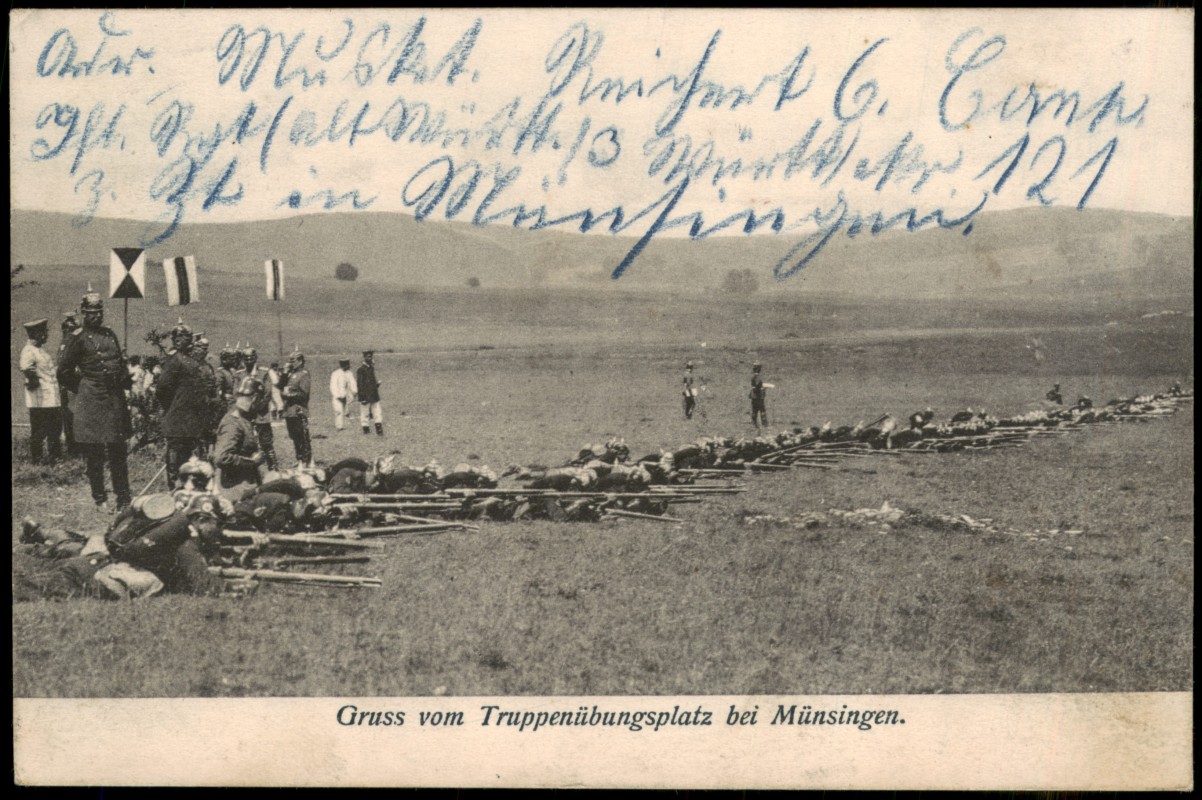 Adr. Musket. Reichert 6. Comp.
Inft. Rgt (alt Württ.) 3 Württ. Nr. 121
z. Zt in Münsingen.
Gruss vom Truppenübungsplatz bei Münsingen.